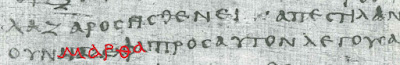 ΛΑΖΑΡΟΣ ΗΣΘΕΝΕΙ : ΑΠΕΣΤΙΛΑΝ
ΟΥΝ ΜΑΡΘΑ ΠΡΟΣ ΑΥΤΟΝ ΛΕΓΟΥΣΑ